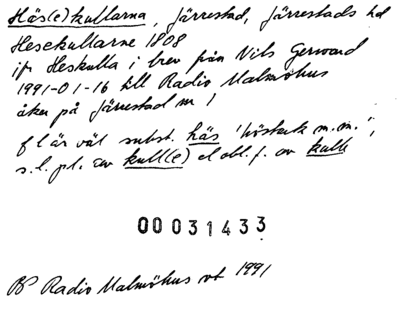 Häs(e)kullarna, Järrestad, Järrestads hd
Hesekullarne 1808
jfr Heskulla i brev från Nils Gerward
1991-01-16 till Radio Malmöhus
åker på Järrestad nr 1
f l är väl subst. häs 'höstack m.m.',
s.l. pl. av kull(e) el obl. f. av kulle
00031433
Radio Malmöhus vt 1991